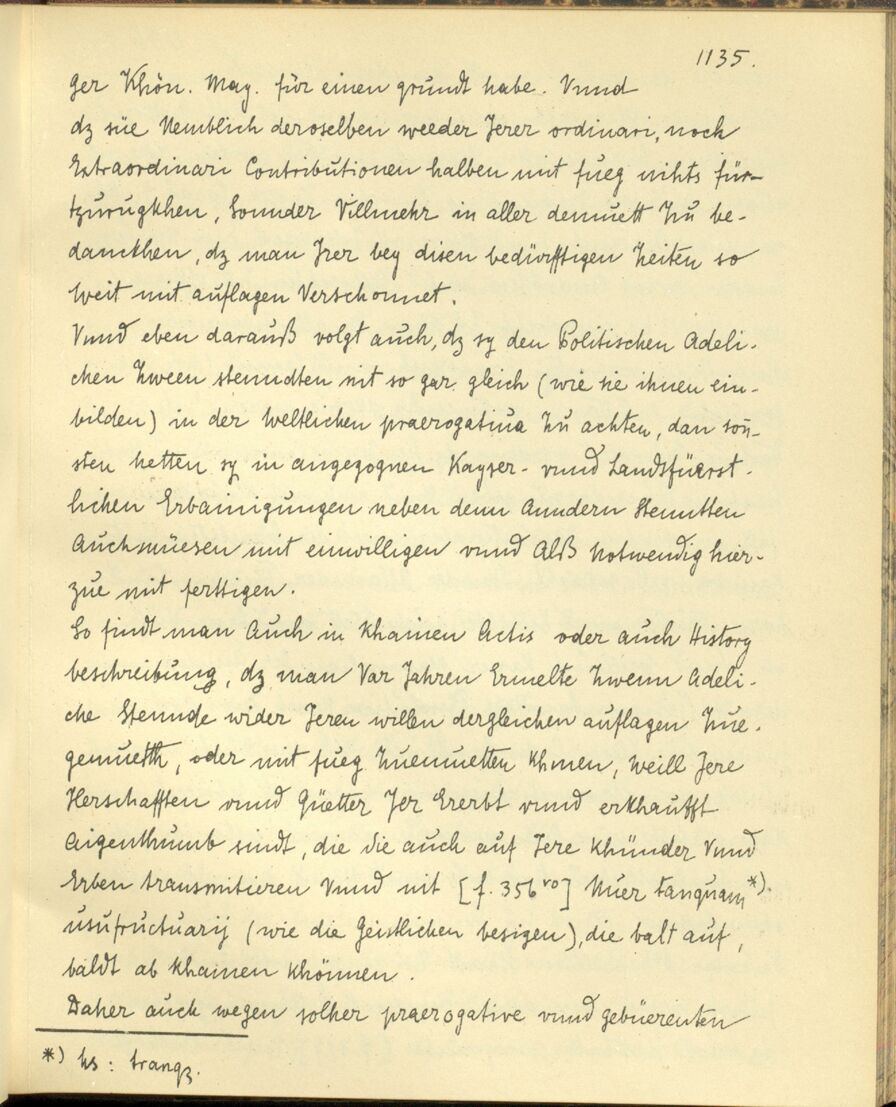 1135.
ger Khön. May. für einen grundt habe. Vnnd
dz süe Nemblich deroselben weeder Jerer ordinari, noch
Extraordinari Contributionen halben mit fueg nihts für-
tzurugkhen, Sonnder Villmehr in aller demuett Zu be-
danckhen, dz man Jrer bey disen bedürfftigen Zeiten so
Weit mit auflagen Verschonnet.
Vnnd eben darauß volgt auch, dz sy den Politischen Adeli-
chen Zween stenndten nit so gar gleich (wie sie ihnen ein-
bilden) in der Weltlichen praerogatiua Zu achten, dan son-
sten hetten sy in angezognen Kayser- vnnd Landsfüerst-
lichen Erbainigungen neben denn Anndern Stenntten
Auch müesen mit einwilligen vnnd Alß Notwendig hier-
zue mit ferttigen.
So findt man Auch in Khainen Actis oder auch History
beschreibung, dz man Var Jahren Ermelte Zwenn Adeli-
che Stennde wider Jeren willen dergleichen auflagen Zue-
gemuetth, oder mit fueg Zuemuetten Khinen, Weill Jere
Herschafften vnnd Güetter Jer Ererbt vnnd erkhaufft
Aigenthumb sindt, die sie auch auf Jere Khünder Vnnd
Erben transmitieren Vnnd nit [f. 356 vo] Nuer tanquam *)
usufructuarij (wie die Geistlichen besigen), die balt auf,
baldt ab Khainen Khönnen.
Daher auch wegen solher praerogative vnnd gebüerenten
*) hs: tranqz.